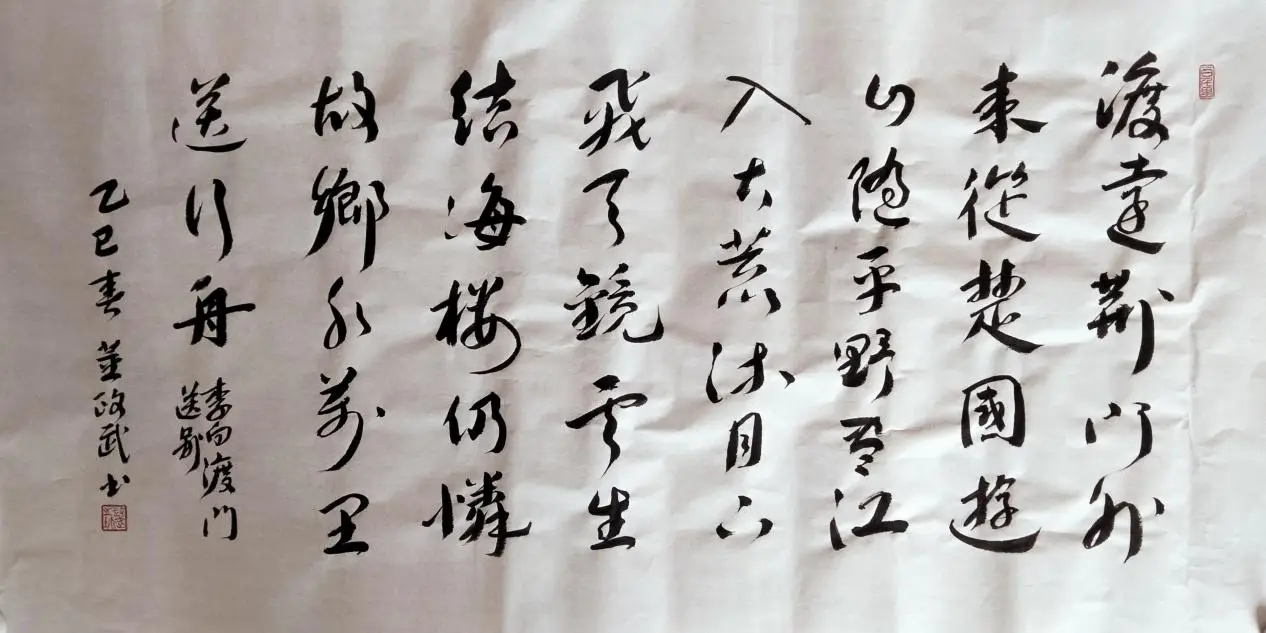 渡遠荆門外
來從楚國遊
山隨平野盡江
入大荒流月下
飛天鏡雲生
結海樓仍憐
故鄉水萬里
送行舟
李白渡門
送别
乙巳春 董政武書